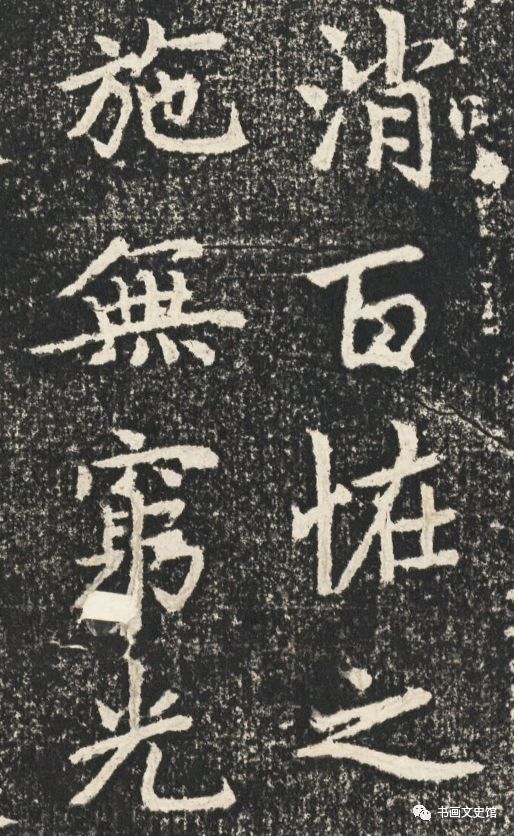 消百恠之
施無窮光
书画文史馆